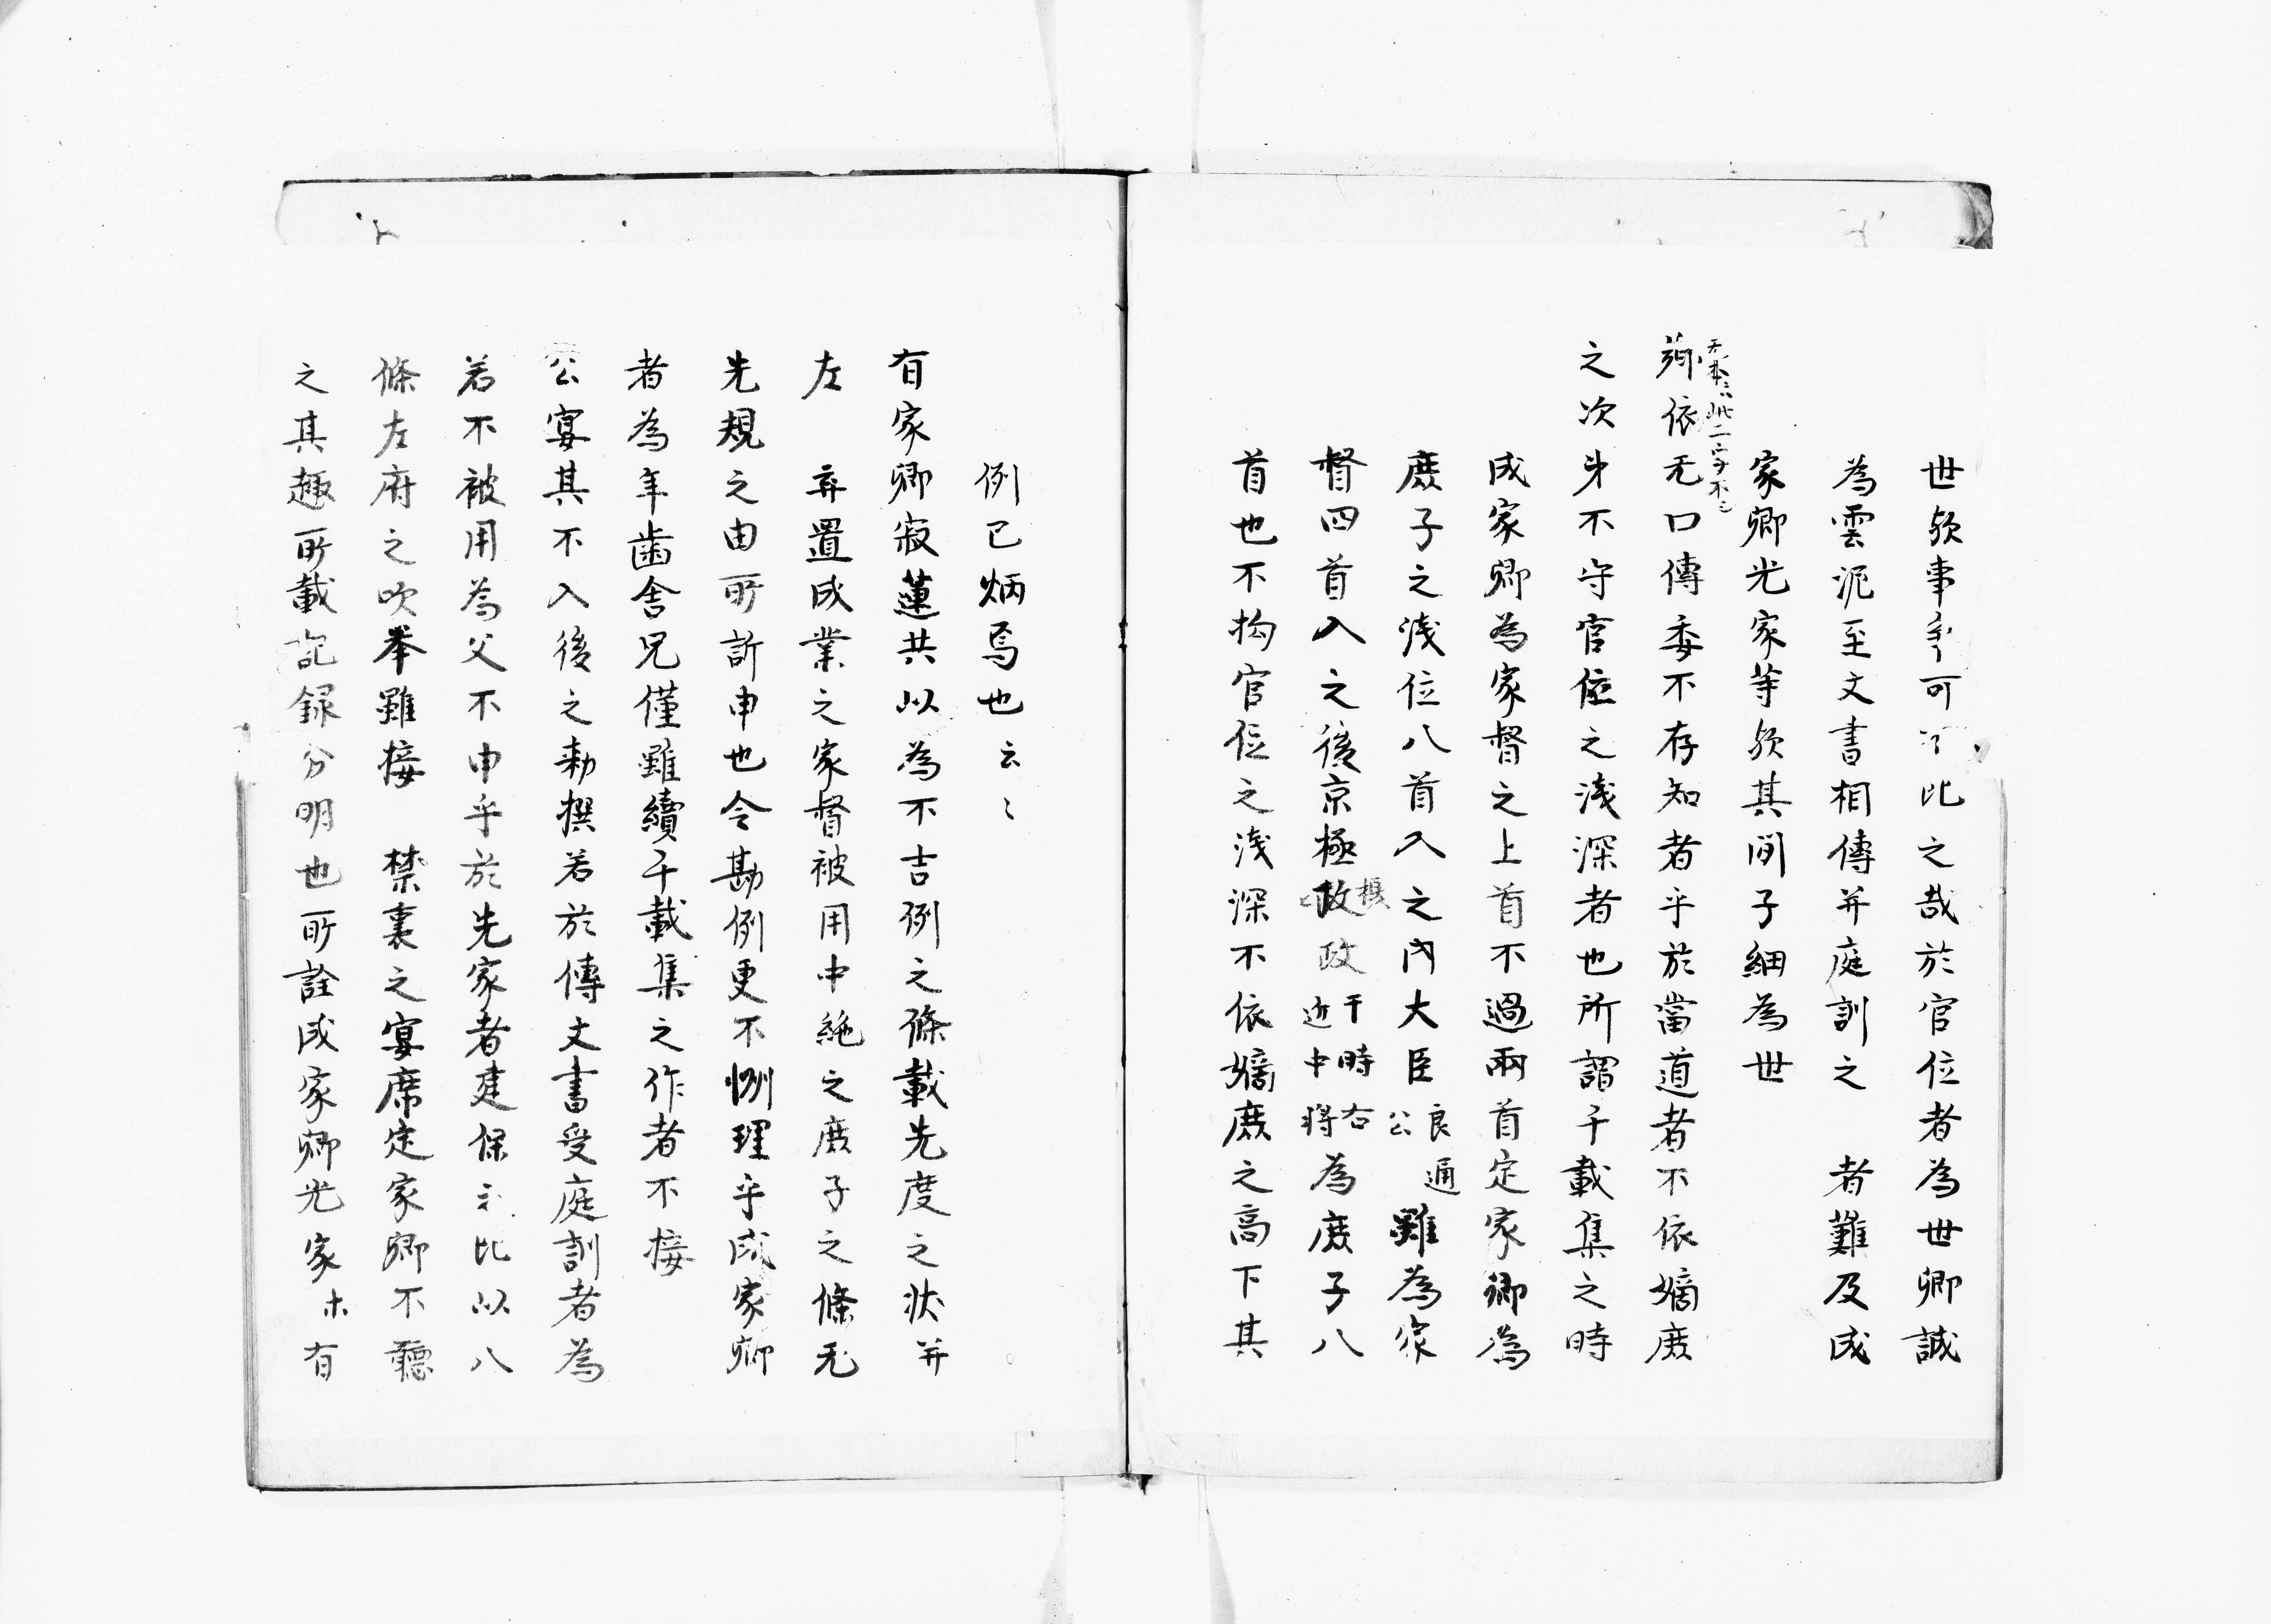 世欤事争可 比之哉於官位者為世卿誠
為雲泥至文書相傳并庭訓之　者難及成
家卿光家等欤其間子細為世
此二字不
依无口傳委不存知者乎於當道者不依嫡庶
之次第不守官位之浅深者也所謂千載集之時
成家卿為家督之上首不過兩首定家卿為
庶子之浅位八首入之内大臣良通公雖為家
督四首入之後京極摂政政于時右近中将為庶子八
首也不拘官位之浅深不依嫡庶之高下其
例已炳焉也云々
有家卿寂蓮共以為不吉例之條載先度之状并
左　弃置成業之家督被用中絶之庶子之條无
先規之由所訴申也令勘例更不惻理乎成家卿
者為年歯舎兄僅雖續千載集之作者不接
公宴其不入後之勅撰若於傳文書受庭訓者為
若不被用為父不申乎於先家者建保 比以八
條左府之吹挙雖接　禁裏之宴席定家卿不聽
之其趣所載記録分明也所詮成家卿光家ホ有